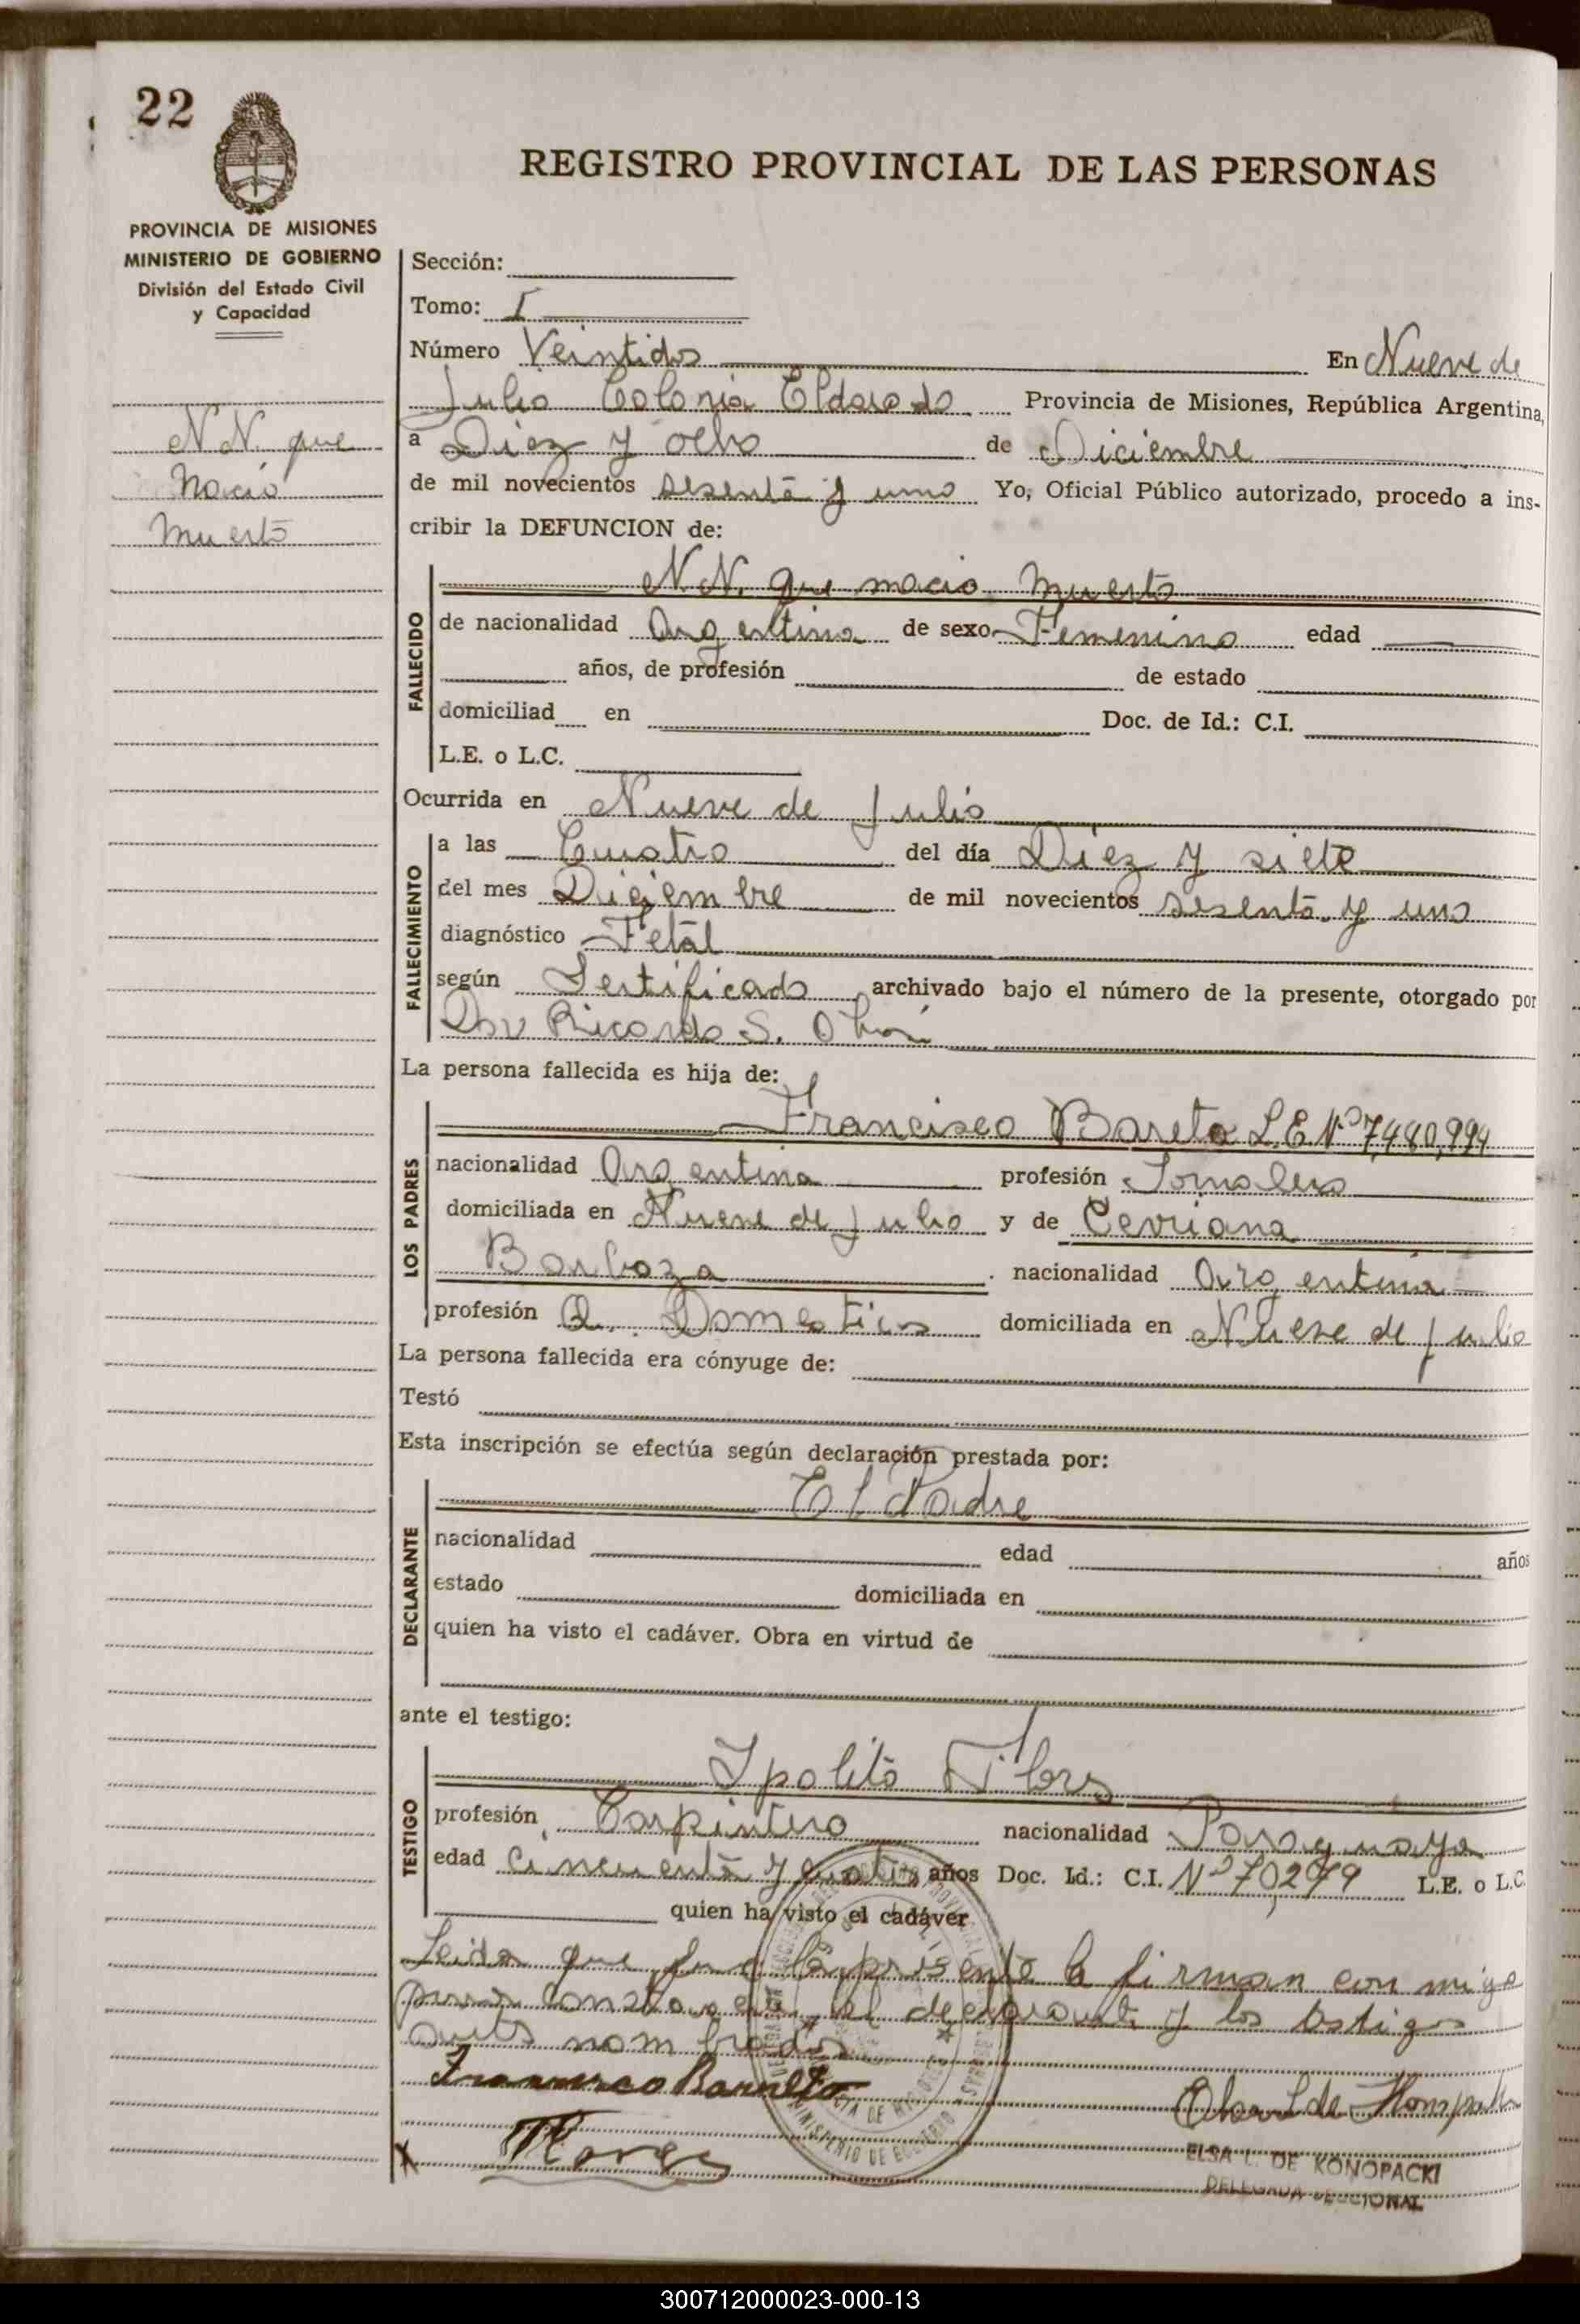 22
REGISTRO PROVINCIAL DE LAS PERSONAS
PROVINCIA DE MISIONES
MINISTERIO DE GOBIERNO
División del Estado Civil
y Capacidad
N.N. que
nació
muerto
Sección:
Tomo: I
Número Veintidos En Nueve de
Julio Colonia Eldorado Provincia de Misiones, República Argentina,
a Diez y ocho de Diciembre
de mil novecientos sesenta y uno Yo, Oficial Público autorizado, procedo a ins-
cribir la DEFUNCION de:
FALLECIDO
N.N. que nacio muerto
de nacionalidad Argentina de sexo Femenino edad
años, de profesión de estado
domiciliad en Doc. de Id.: C.I.
L.E. o L.C.
Ocurrida en Nueve de Julio
FALLECIMIENTO
a las Cuatro del día Diez y siete
del mes Diciembre de mil novecientos sesenta y uno
diagnóstico Fetal
según Sertificado archivado bajo el número de la presente, otorgado por
Ricardo S.
La persona fallecida es hija de:
LOS PADRES
Francisco Bareto L.E. Nº 7,480,994
nacionalidad Argentina profesión Jornalero
domiciliada en Nueve de Julio y de Cevriana
Barboza nacionalidad Argentina
profesión Q. Domesticos domiciliada en Nueve de Julio
La persona fallecida era cónyuge de:
Testó
Esta inscripción se efectúa según declaración prestada por:
DECLARANTE
El Padre
nacionalidad edad años
estado domiciliada en
quien ha visto el cadáver. Obra en virtud de
ante el testigo:
TESTIGO
Ipolito Flores
profesión Carpintero nacionalidad Paraguaya
edad Cincuenta y cuatro años Doc. Id.: C.I. Nº 70,279 L.E. o L.C.
quien ha visto el cadáver
Leida que fue la presente la firman con migo
para constancia el declarante y los testigos
antes nombrados
Francisco Barreto
Flores
ELSA L. DE KONOPACKI
DELEGADA SECCIONAL
300712000023-000-13